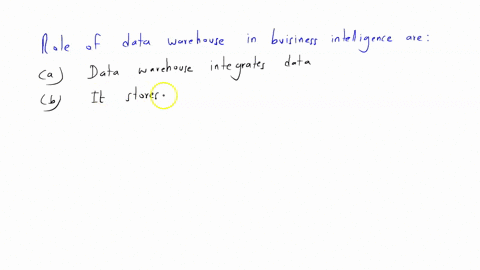 Role of data warehouse in buisiness intelligence are:
(a) Data warehouse integrates data
(b) It stores